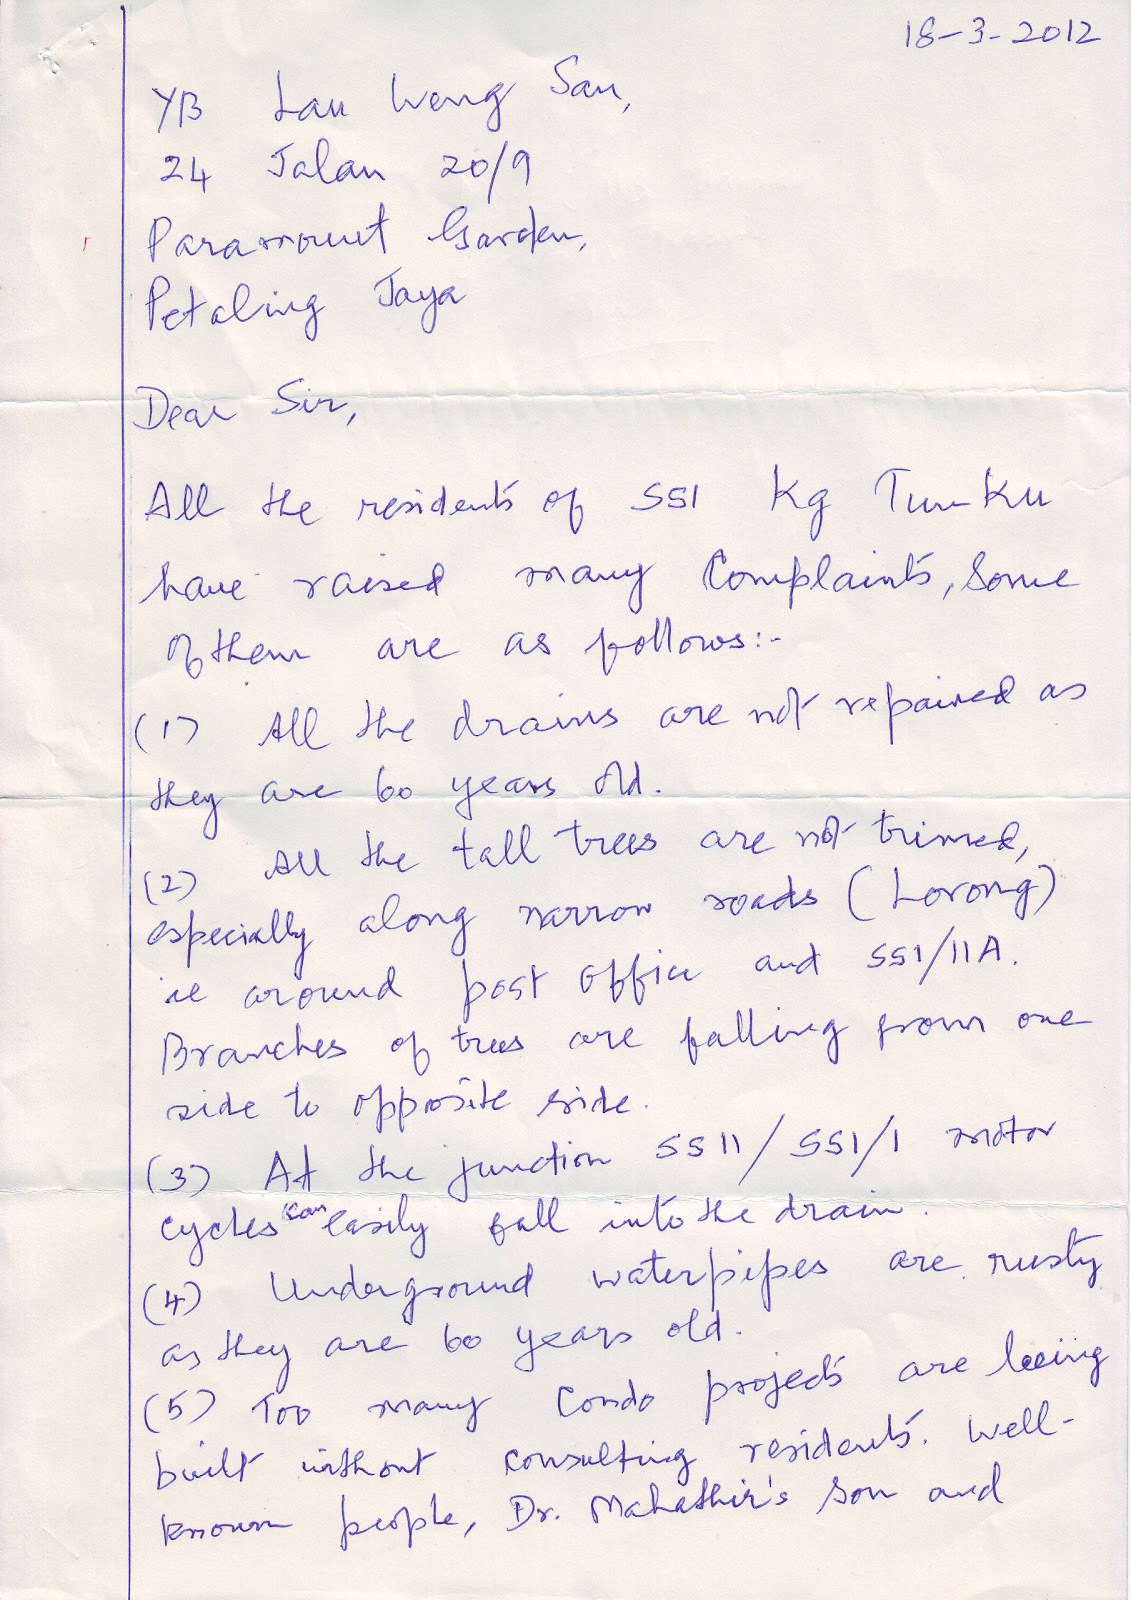 18-3-2012
YB Lau Weng San,
24 Jalan 20/9
Paramount Garden,
Petaling Jaya
Dear Sir,
All the residents of SS1 Kg Tunku
have raised many Complaints, Some
of them are as follows:-
(1) All the drains are not repaired as
they are 60 years old.
(2) All the tall trees are not trimed,
especially along narrow roads (Lorong)
ie around post office and SS1/11A.
Branches of trees are falling from one
side to opposite side.
(3) At the junction SS11/SS1/1 motor
cycles can easily fall into the drain.
(4) Underground waterpipes are rusty
as they are 60 years old.
(5) Too many Condo projects are being
built without consulting residents. Well-
known people, Dr. Mahathir's son and